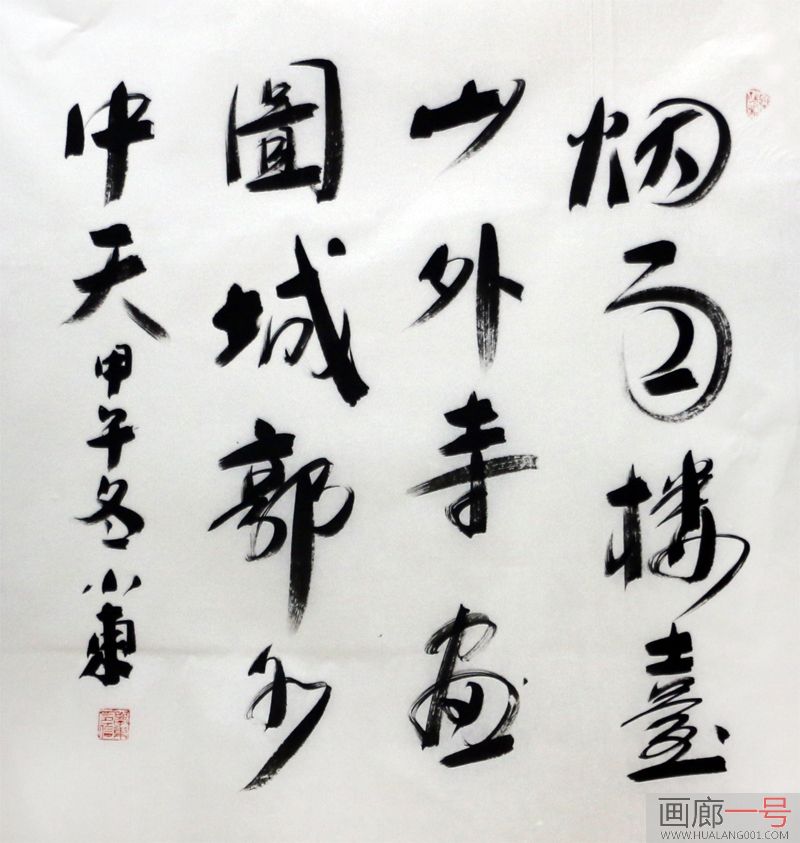 烟雨楼臺
山外寺畫
圖城郭水
中天 甲午冬 小東
画廊一号
WWW.HUALANG001.COM